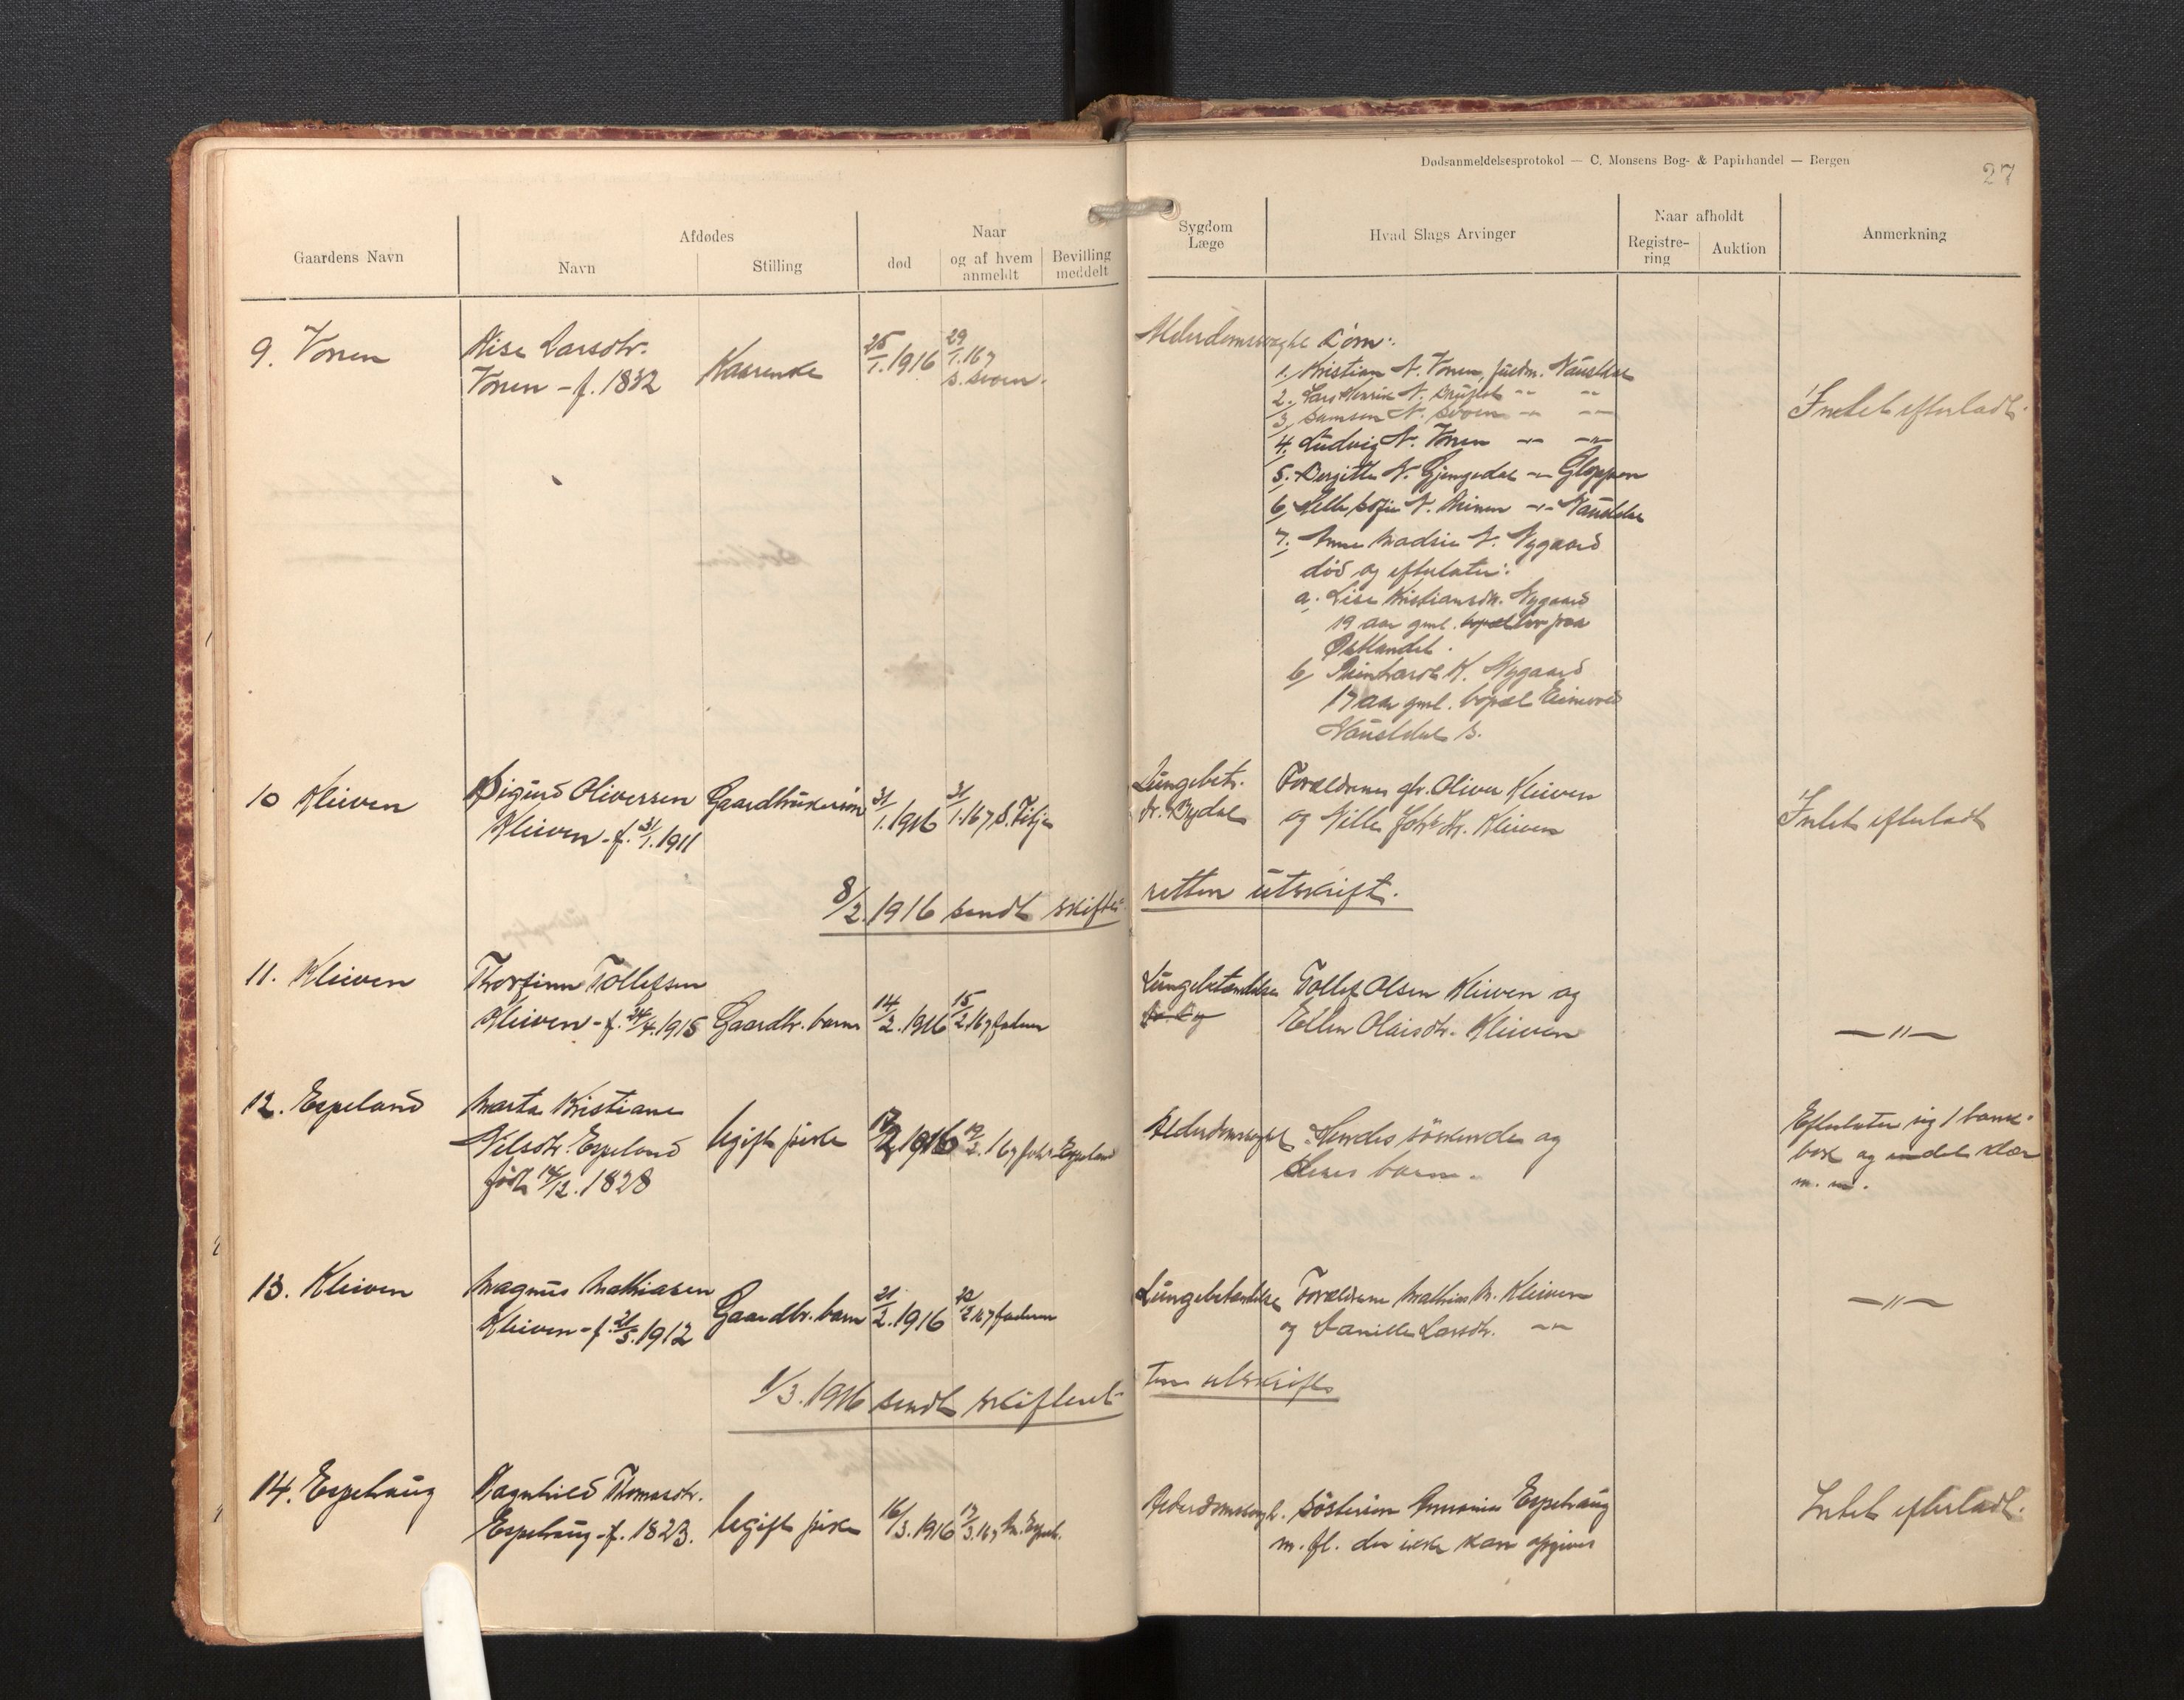 Dødsanmeldelsesprotokol — C. Monsens Bog- & Papirhandel — Bergen
27
Gaardens Navn
Afdødes
Navn
Stilling
Naar
død
og af hvem anmeldt
Bevilling meddelt
Sygdom Læge
Hvad Slags Arvinger
Naar afholdt
Registrering
Auktion
Anmerkning
9. Vonen
Larsdtr.
Vonen - f. 1832
Kaarenke
25/1.1916
29/1.16 7
Alderdomssvaghet
Børn:
1, Kristian N. Vonen, Naustdal
2. Lars Henrik N.
3, Samson N.
4. Ludvig N. Vonen
5. Bergitte N. Gjengedal Gloppen
6, N. Naustdal
7. Anne Madsie N. Nygaard
død og efterlater:
a. Lise Kristiansdtr. Nygaard
19 aar gml. paa
Østlandet.
b, Reinhardt K. Nygaard
17 aar gml. bopæl
Naustdal s.
Intet efterladt.
10 Kleiven
Sigurd Oliversen
Kleiven - f. 31/1.1911
Gaardbrukersøn
31/1.1916
31/1.16 7 S.
Lungebet.
dr. Bydal
Forældrene gbr. Oliver Kleiven
og Kleiven
Intet efterladt
8/2.1916 sendt skifte-
retten utskrift.
11. Kleiven
Thorfinn Tollefsen
Kleiven - f. 24/4.1915
Gaardbr. barn
14/2.1916
15/2.16 7 faderen
Lungebetændelse
Tollef Olsen Kleiven og
Ellen Olaisdtr. Kleiven
— " —
12. Espeland
Marta Kristiane
Nilsdtr. Espeland
født 14/12.1828
Ugift pike
17/2 1916
Espeland
Alderdomssvaghet
Hendes søskende og
deres barn.
Efterlater sig 1 bank-
bok og endel klær
m. m.
13. Kleiven
Magnus Mathiasen
Kleiven - f. 21/5.1912
Gaardbr. barn
21/2.1916
faderen
Lungebetændelse
Forældrene Mathias M. Kleiven
og Danielle Larsdtr. — " —
— " —
1/3.1916 sendt skifteret-
ten utskrift
14. Espehaug
Ragnhild Thomasdtr.
Espehaug - f. 1823.
Ugift pike
16/3.1916
17/3.16 7
Alderdomssvagh.
Søstersøn Espehaug
m. fl. der ikke kan opgives
Intet efterladt.